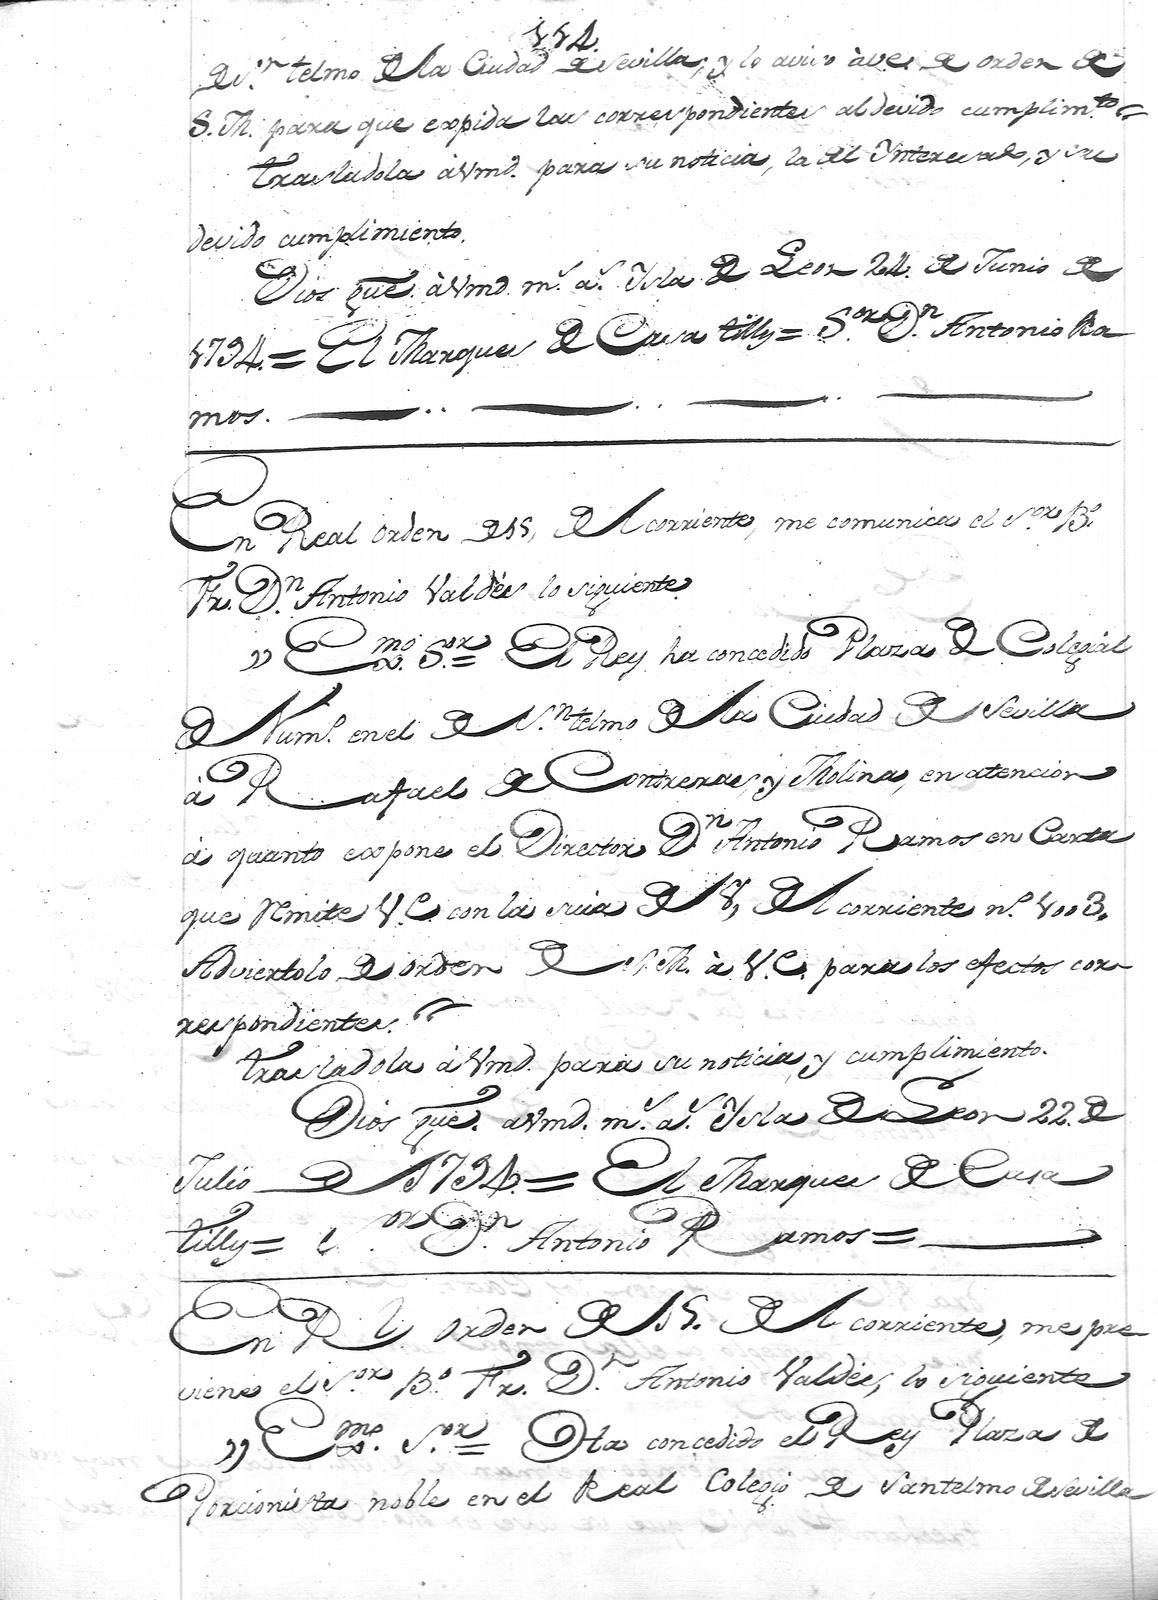 114.
de S.n telmo de la Ciudad de Sevilla; y lo aviso à V.e. de orden de
S. M. para que expida las correspondientes al devido cumplim.to
trasladola à Vmd. para su noticia, la del Interesado, y su
devido cumplimiento.
Dios gue. à Vmd. m.s a.s Isla de Leon 24. de Junio de
1794.= El Marques de Casa tilly= S.or D.n Antonio Ra
mos.
En Real orden de 15, del corriente, me comunica el S.or B.o
Fr. D.n Antonio Valdés lo siguiente
" Exmo. S.or= El Rey ha concedido Plaza de Colegial
de Num.o en el de S.n telmo de la Ciudad de Sevilla
à Rafael de Contreras, y Molina, en atencion
à quanto expone el Director D.n Antonio Ramos en Carta
que remite V.E. con la suia de 8, del corriente n.o 1003.
Adviertolo de orden de S. M. à V.E. para los efectos cor-
respondientes."
trasladola à Vmd. para su noticia, y cumplimiento.
Dios gue. a Vmd. m.s a.s Isla de Leon 22. de
Julio de 1794.= El Marques de Casa
tilly= S.or D.n Antonio Ramos=
En R.l orden de 15. del corriente, me pre-
viene el S.or B.o Fr. D.n Antonio Valdés, lo siguiente
" Exmo. S.or= Ha concedido el Rey Plaza de
Porcionista noble en el Real Colegio de Santelmo de Sevilla